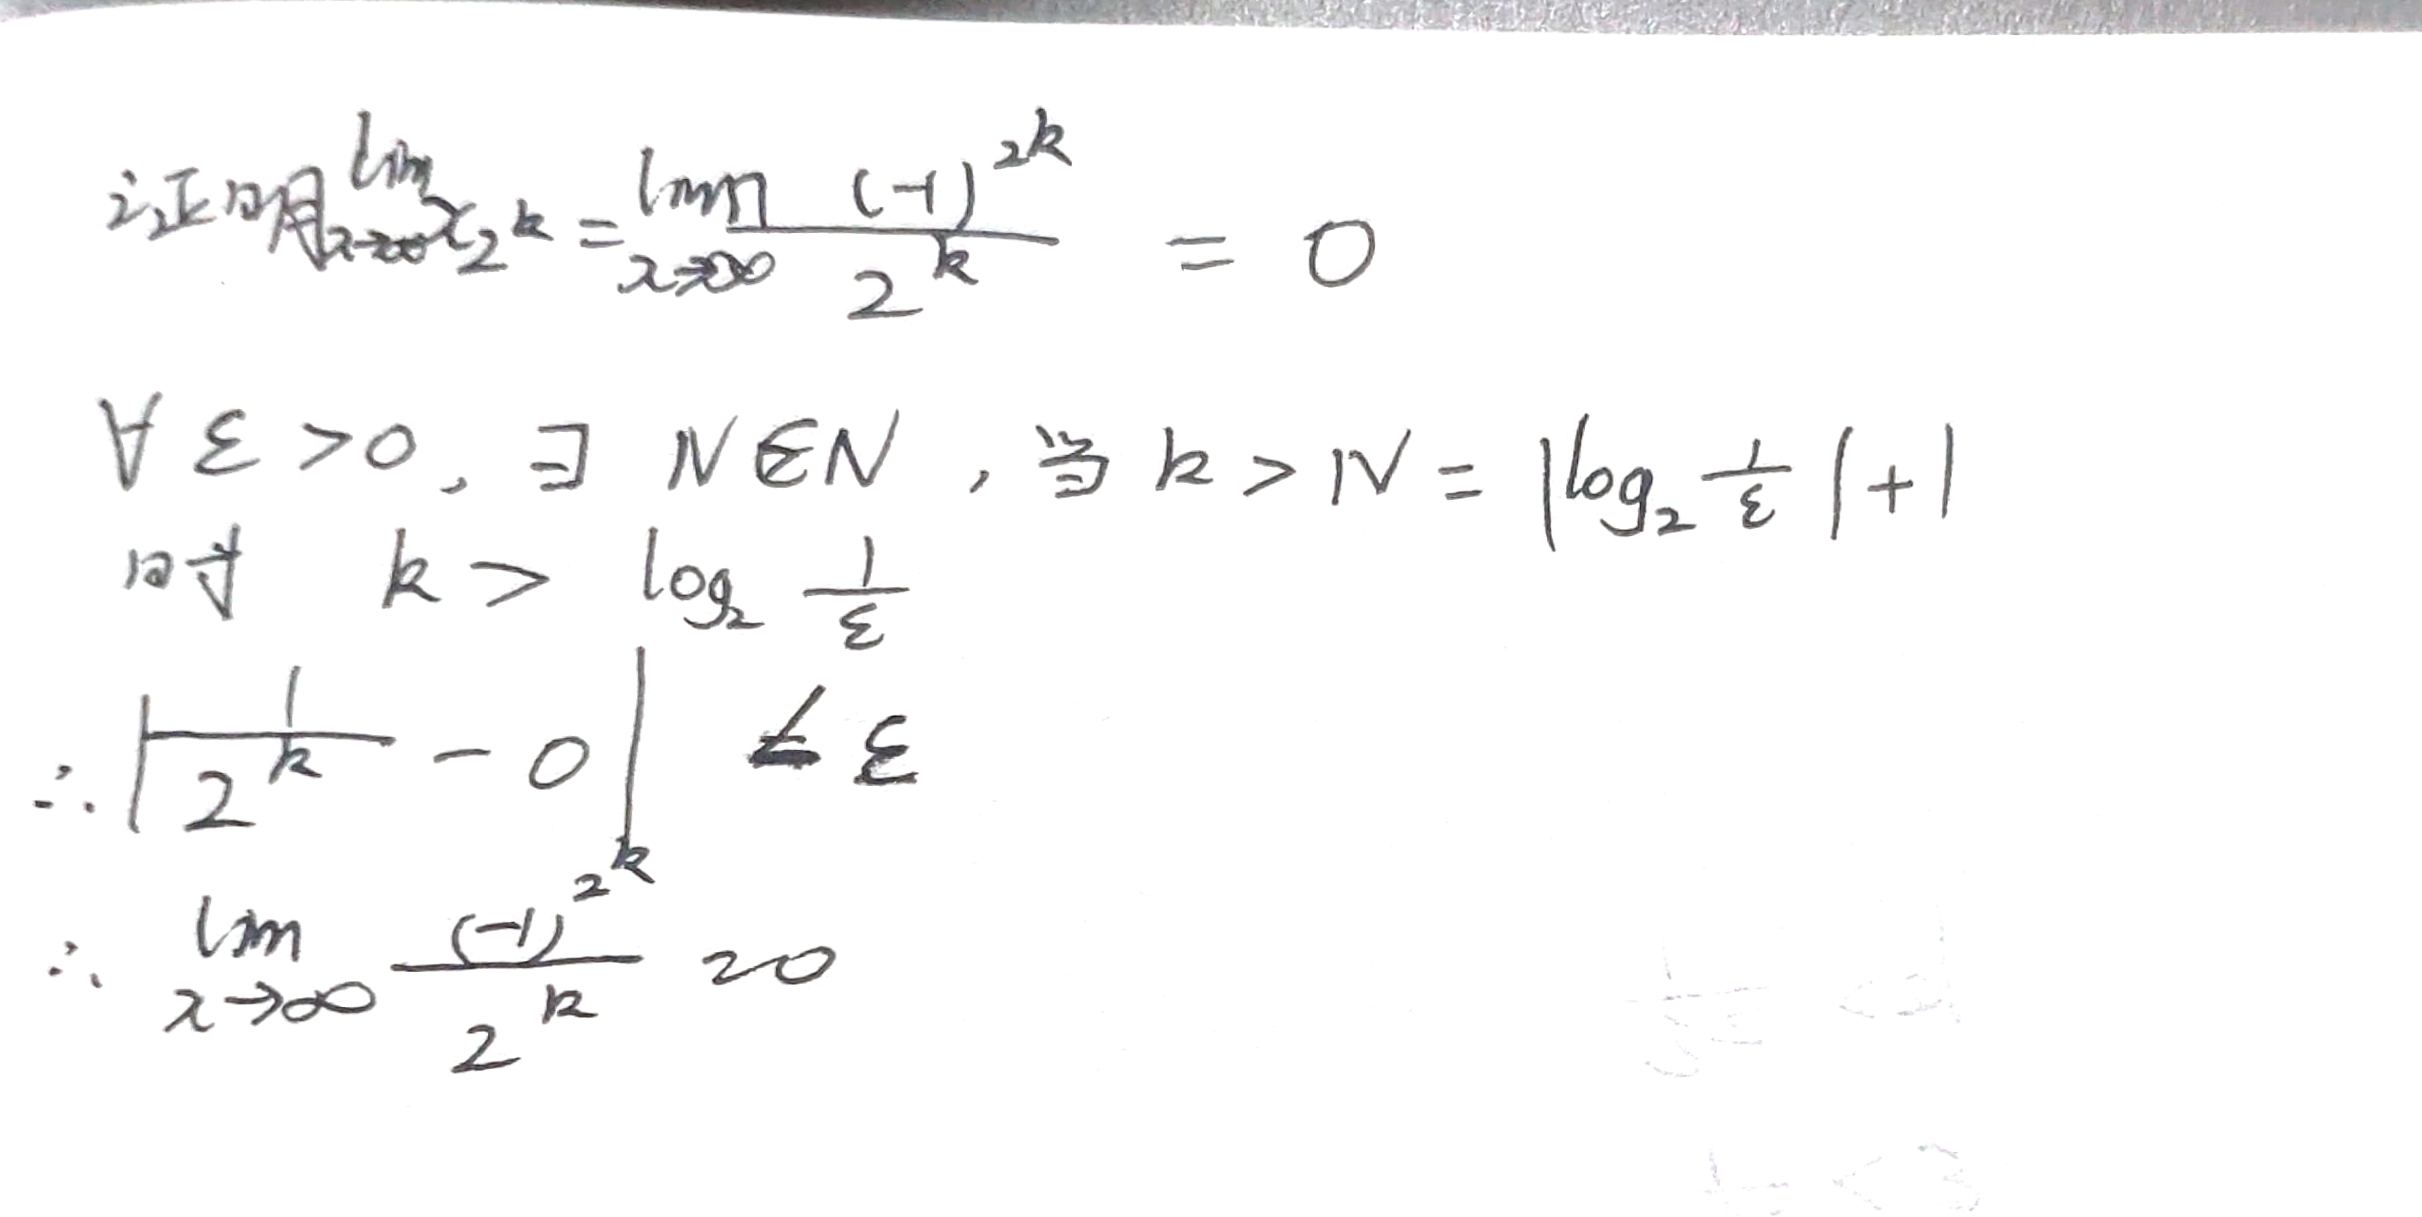 证明 lim_{x→∞} x_{2^k} = lim_{x→∞} (-1)^{2^k} / 2^k = 0
∀ ε > 0, ∃ N ∈ N, 当 k > N = |log₂ 1/ε| + 1
时 k > log₂ 1/ε
∴ |1/2^k - 0| < ε
∴ lim_{x→∞} (-1)^{2^k} / 2^k = 0